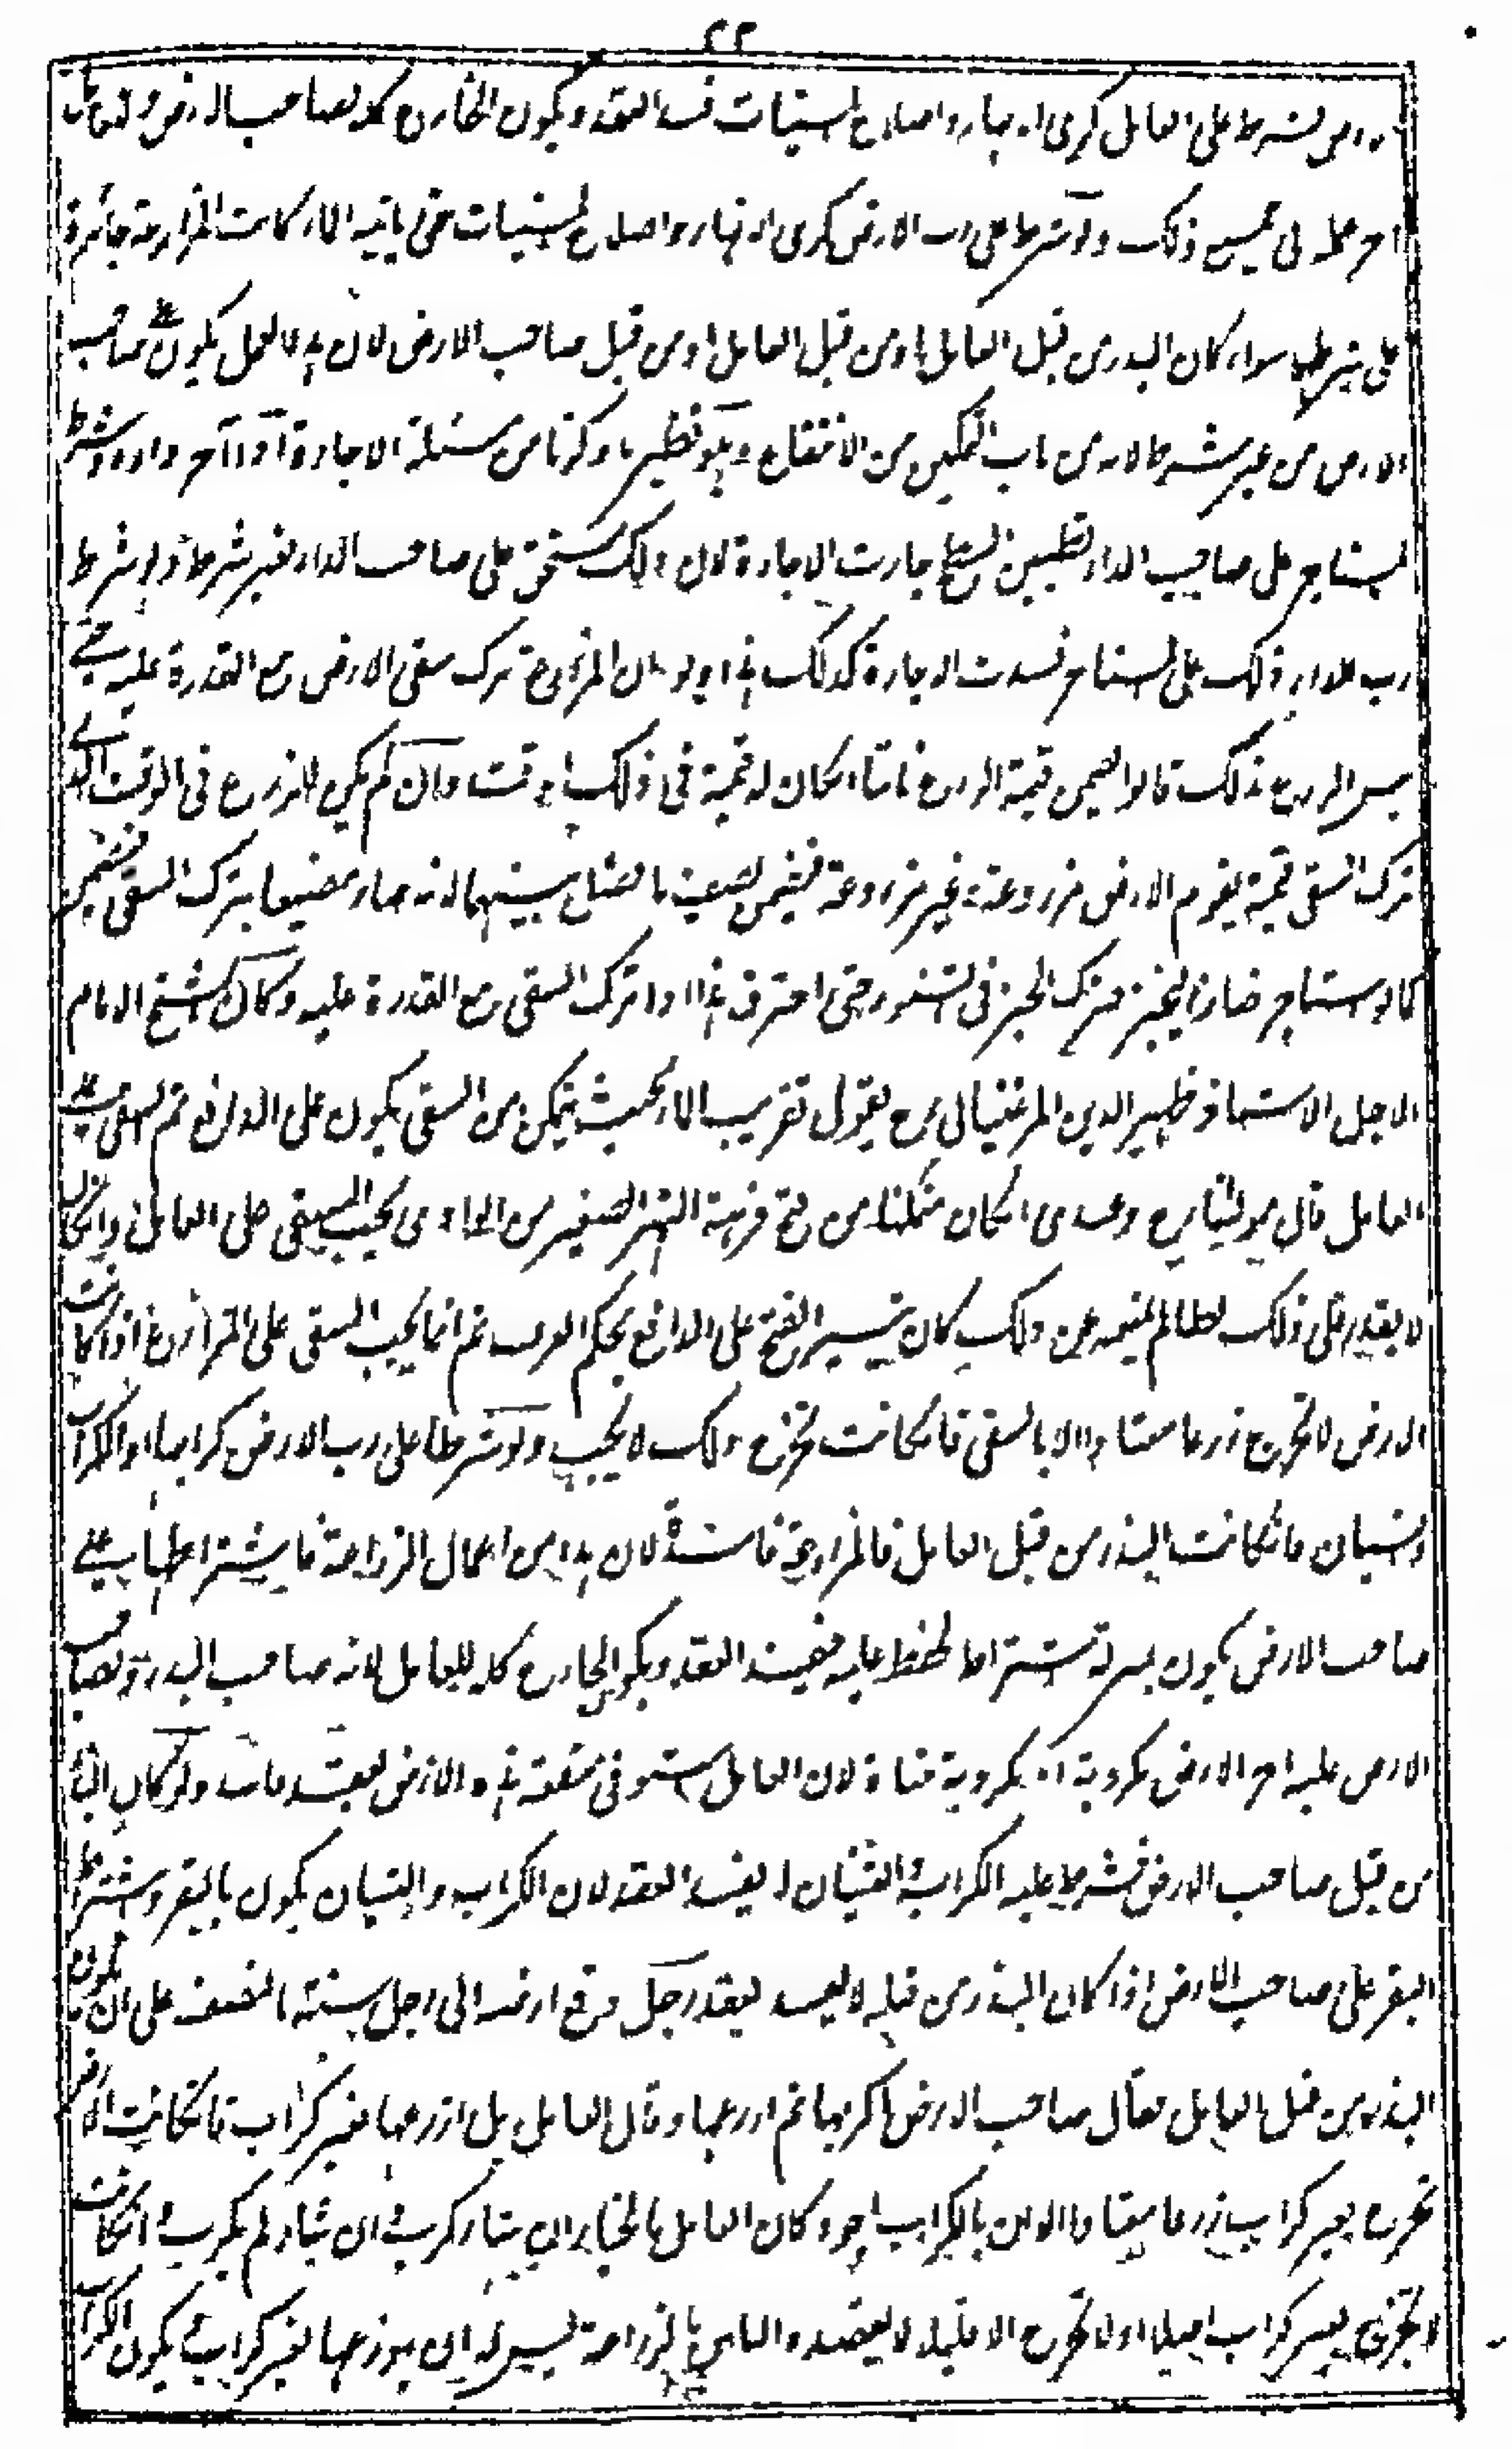 ٢٢
شرطا على العامل كرى الانهار واصلاح المسنيات فسد العقد ويكون الخارج كله لصاحب الارض وللعامل
اجر عمله في جميع ذلك ولو شرطا على رب الارض كرى الانهار واصلاح المسنيات حتى ياتيه الماء كانت المزارعة جائزة
على شرطهما سواء كان البذر من قبل العامل او من قبل صاحب الارض لان هذا العمل يكون على صاحب
الارض من غير شرط لانه من باب التمكين من الانتفاع وهو نظير ما ذكرنا من مسئلة الاجارة اذا آجر داره وشرط
المستاجر على صاحب الدار تطيين السطح جازت الاجارة لان ذلك مستحق على صاحب الدار بغير شرط ولو شرط
رب الدار ذلك على المستاجر فسدت الاجارة كذلك هذا ولو ان المزارع ترك سقي الارض مع القدرة عليه حتى
يبس الزرع بذلك قالوا يضمن قيمة الزرع نابتا ان كان له قيمة في ذلك الوقت وان لم يكن للزرع في الوقت الذي
ترك السقي قيمة يقوم الارض مزروعة وغير مزروعة فيضمن نصف ما فضل بينهما لانه صار مضيعا بترك السقي فيضمن
كما لو استاجر خبازا ليخبز فترك الخبز في التنور حتى احترق هذا اذا ترك السقي مع القدرة عليه وكان الشيخ الامام
الاجل الاستاذ ظهير الدين المرغيناني رح يقول تقريب الماء بحيث يتمكن من السقي يكون على الدافع ثم السقي على
العامل قال مولانا رح وعندي ان كان متمكنا من فتح فوهة النهر الصغير من الوادي يجب السقي على العامل وان كان
لا يقدر على ذلك لظالم يمنعه عن ذلك كان تيسير الفتح على الدافع بحكم العرف ثم انما يجب السقي على المزارع اذا كانت
الارض لا تخرج زرعا معتادا الا بالسقي فان كانت تخرج ذلك لا يجب ولو شرطا على رب الارض كرابها او الكراب
والثنيان فان كانت البذر من قبل العامل فالمزارعة فاسدة لان هذا من اعمال الزراعة فاشتراطها على
صاحب الارض يكون بمنزلة اشتراط الحفظ عليه فيفسد العقد ويكون الخارج كله للعامل لانه صاحب البذر ولصاحب
الارض عليه اجر الارض مكروبة او مكروبة مثناة لان العامل استوفى منفعة هذه الارض بعقد فاسد ولو كان البذر
من قبل صاحب الارض فشرط عليه الكراب والثنيان لا يفسد العقد لان الكراب والثنيان يكون بالبقر واشتراط
البقر على صاحب الارض اذا كان البذر من قبله لا يفسد العقد رجل دفع ارضه الى رجل سنة بالنصف على ان يكون
البذر من قبل العامل فقال صاحب الارض اكربها ثم ازرعها وقال العامل بل ازرعها بغير كراب فان كانت الارض
تخرج بغير كراب زرعا معتادا الا انه بالكراب اجود كان العامل بالخيار ان شاء كرب وان شاء لم يكرب وان كانت
لا تخرج بغير كراب اصلا او لا تخرج الا قليلا لا يقصده الناس بالزراعة ليس له ان يزرعها بغير كراب يكون الكراب